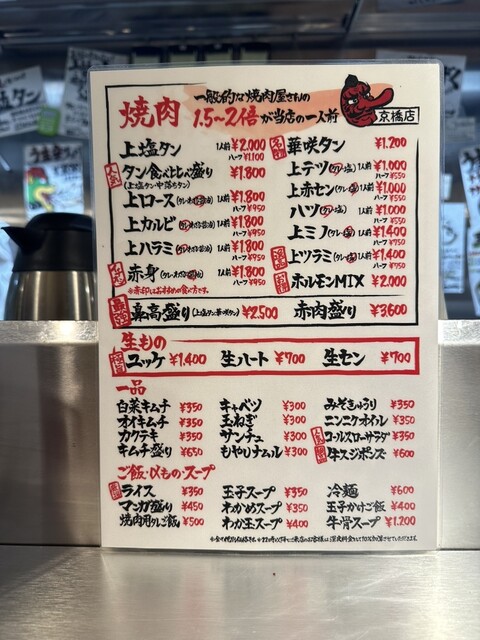 一般的な焼肉屋さんの
焼肉 1.5~2倍が当店の一人前
京橋店
上塩タン 1人前 ¥2,000
ハーフ ¥1,100
人気 タン食べ比べ盛り 1人前 ¥1,800
(上塩タン中落ちタン)
上ロース 1人前 ¥1,800
ハーフ ¥950
上カルビ 1人前 ¥1,800
ハーフ ¥950
上ハラミ 1人前 ¥1,800
ハーフ ¥950
赤身 1人前 ¥1,800
ハーフ ¥950
※赤印はお好みの食べ方です。
名物 華咲タン ¥1,200
上テツ 1人前 ¥1,000
ハーフ ¥550
上赤セン 1人前 ¥1,000
ハーフ ¥550
ハツ 1人前 ¥1,000
ハーフ ¥550
上ミノ 1人前 ¥1,400
ハーフ ¥750
上ツラミ 1人前 ¥1,400
ハーフ ¥750
ホルモンMIX ¥2,000
最高盛り (上塩タン華咲タン) ¥2,500
赤肉盛り ¥3,600
生もの
ユッケ ¥1,400 生ハート ¥700 生セン ¥700
一品
白菜キムチ ¥350
オイキムチ ¥350
カクテキ ¥350
キムチ盛り ¥650
キャベツ ¥300
玉ねぎ ¥300
サンチュ ¥300
もやしナムル ¥300
みそきゅうり ¥350
ニンニクオイル ¥350
人気 コールスローサラダ ¥350
牛スジポンズ ¥600
ご飯・αもの・スープ
ライス ¥350
マンガ盛り ¥450
焼肉用タレご飯 ¥500
玉子スープ ¥350
わかめスープ ¥350
わか玉スープ ¥400
冷麺 ¥600
玉子かけご飯 ¥400
牛骨スープ ¥1,200